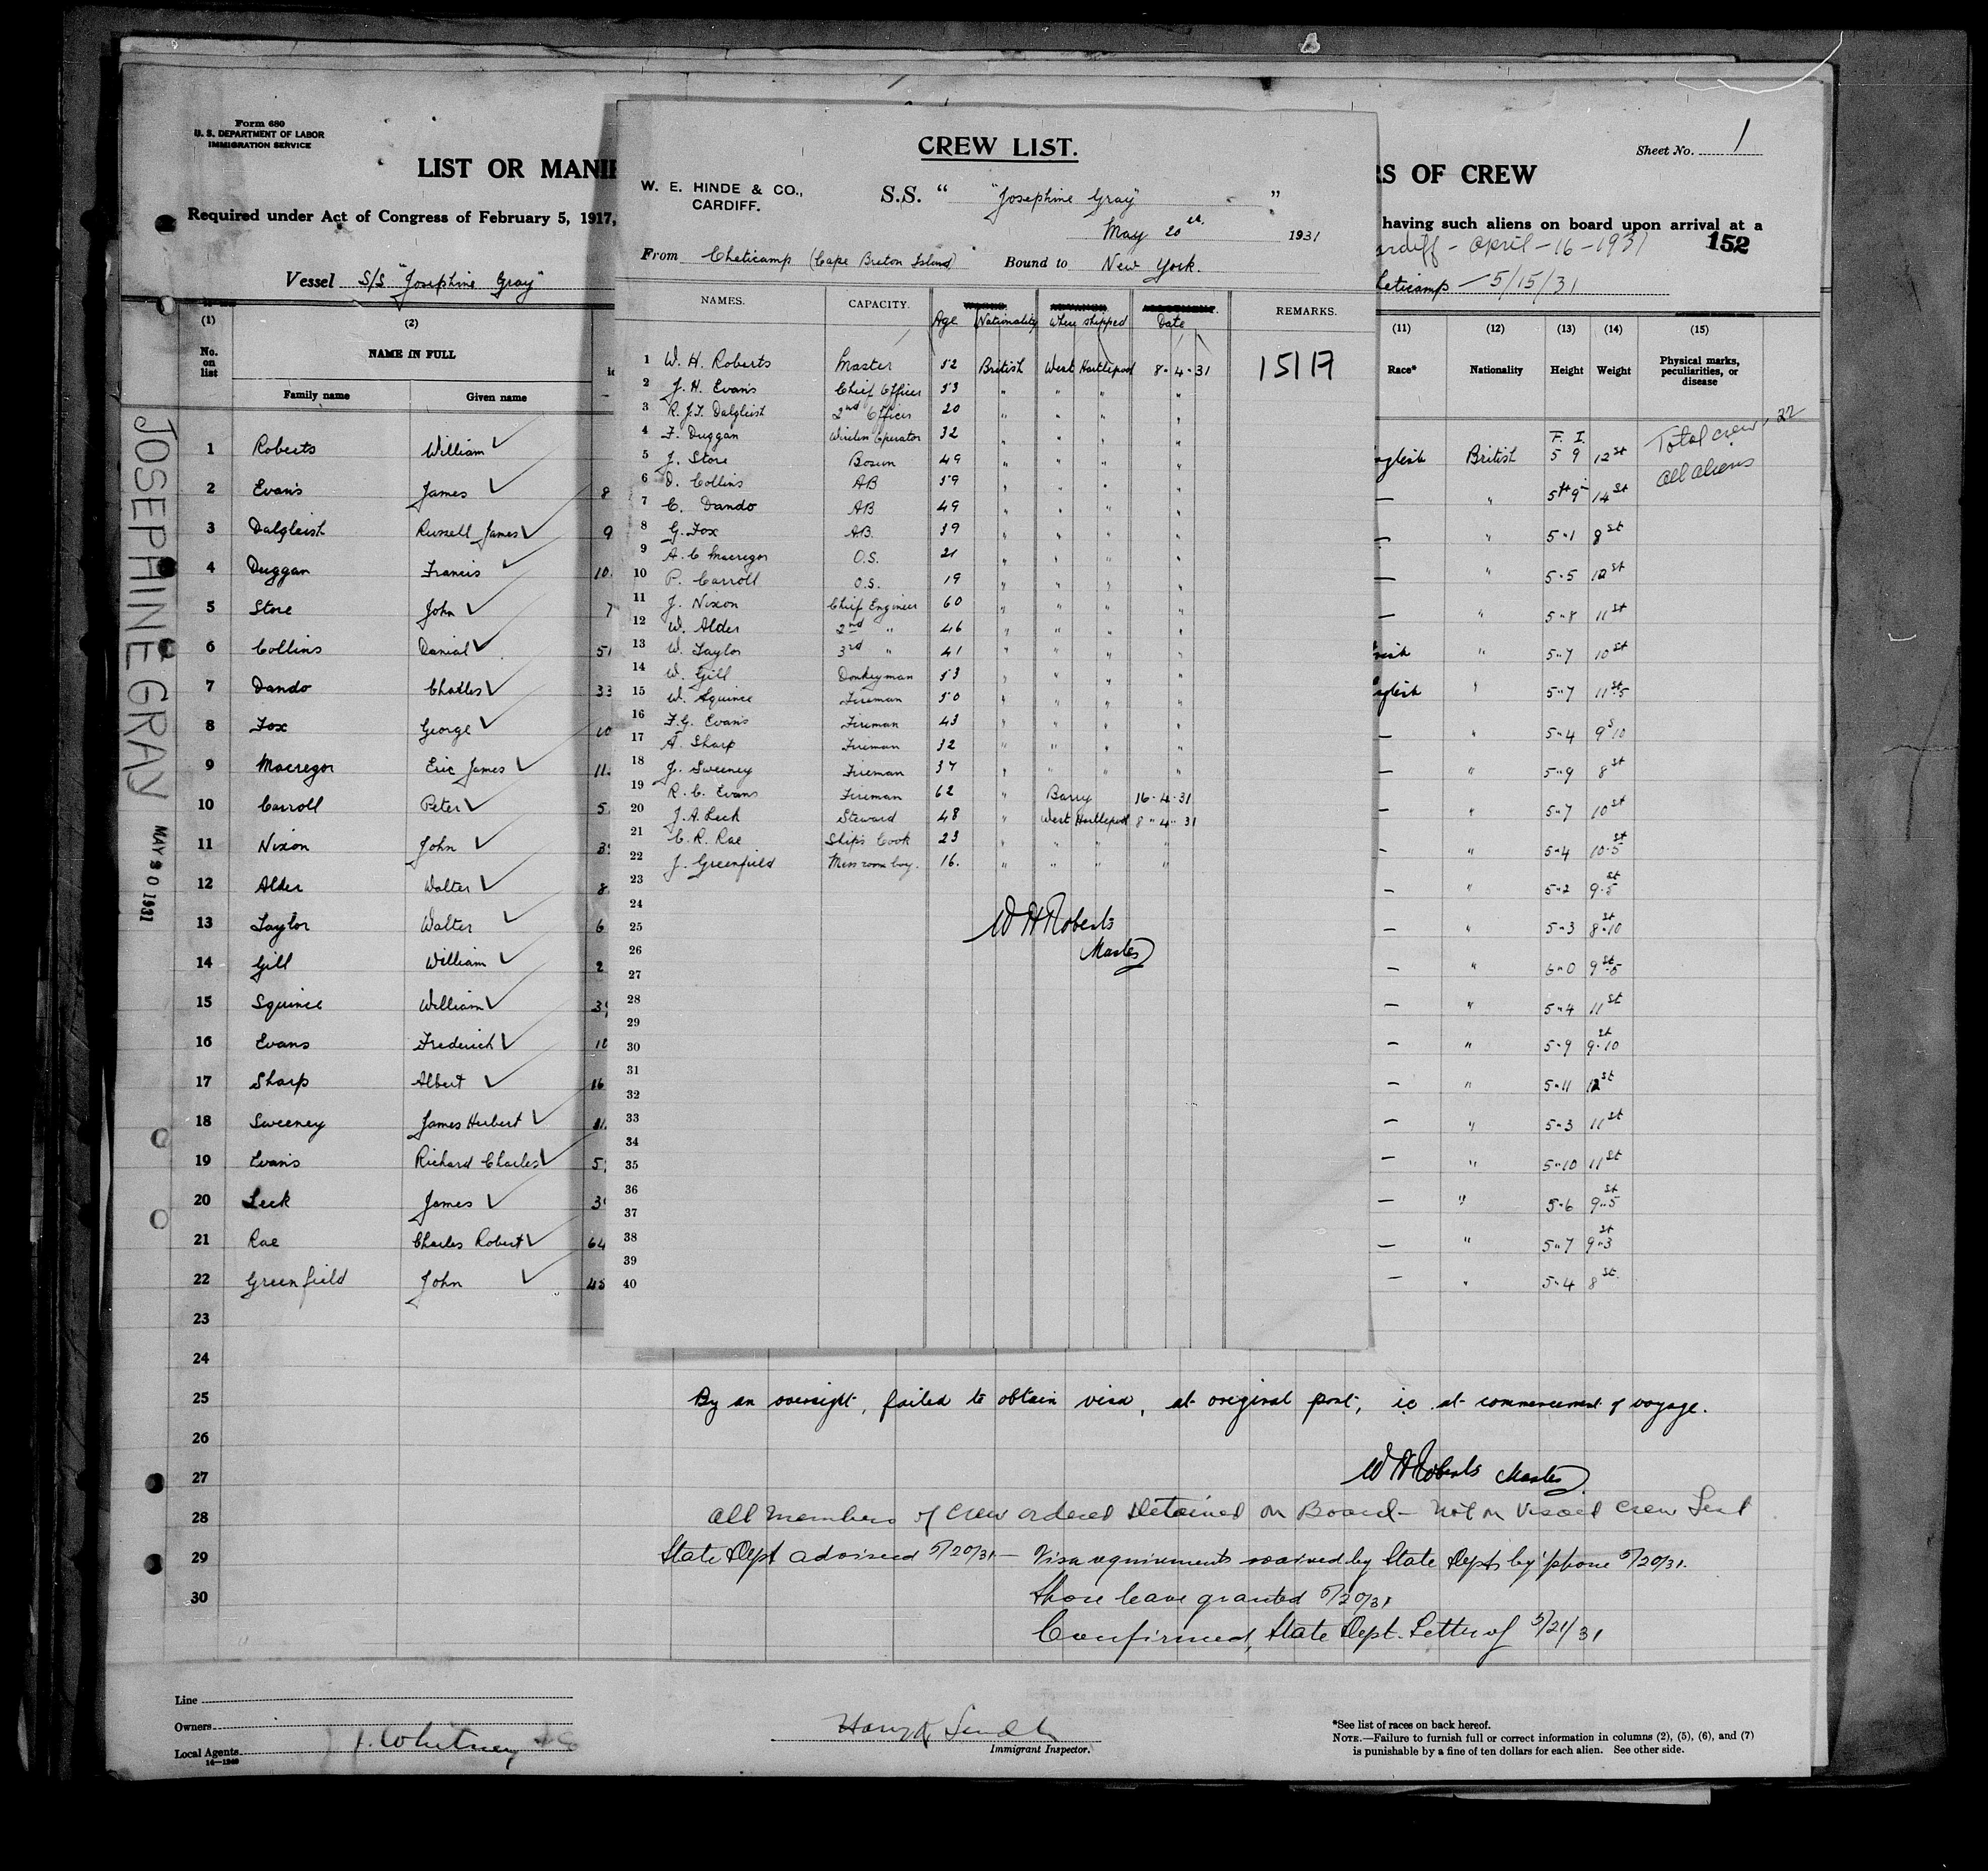 Form 680
U. S. DEPARTMENT OF LABOR
IMMIGRATION SERVICE
Sheet No. 1
LIST OR MANI
RS OF CREW
Required under Act of Congress of February 5, 1917,
having such aliens on board upon arrival at a
ardiff - April - 16 - 1931
152
Vessel S/S "Josephine Gray"
heticamp - 5/15/31
(1) (2) (11) (12) (13) (14) (15)
No. on list
NAME IN FULL
Family name Given name
Race* Nationality Height Weight Physical marks, peculiarities, or disease
Total crew, 22
All aliens
F. I.
1 Roberts William nglish British 5 9 12 st
2 Evans James 8 — " 5 ft 9 14 st
3 Dalgleish Russell James 9 — " 5"1 8 st
4 Duggan Francis 10. — " 5"5 12 st
5 Store John 7 — " 5"8 11 st
6 Collins Danial 51 " 5"7 10 st
7 Dando Charles 33 nglish " 5"7 11 st 5
8 Fox George 10 — " 5"4 9 s 10
9 Macregor Eric James 11. — " 5"9 8 st
10 Carroll Peter 5. — " 5"7 10 st
11 Nixon John 3 — " 5"4 10.5 st
12 Alder Walter 8. — " 5"2 9.5 st
13 Taylor Walter 6 — " 5"3 8.10 st
14 Gill William 2 — " 6"0 9 st 5
15 Squince William 3 — " 5"4 11 st
16 Evans Frederick 10 — " 5"9 9.10 st
17 Sharp Albert 16 — " 5"11 12 st
18 Sweeney James Herbert 11. — " 5"3 11 st
19 Evans Richard Charles 5 — " 5"10 11 st
20 Leck James 3 — " 5"6 9"5 st
21 Rae Charles Robert 64 — " 5"7 9"3 st
22 Greenfield John 45 — " 5"4 8 st
23
24
25
26
27
28
29
30
JOSEPHINE GRAY
MAY 20 1931
CREW LIST.
W. E. HINDE & CO.,
CARDIFF.
S.S. " "Josephine Gray" "
May 20th. 1931
From Cheticamp (Cape Breton Island) Bound to New York.
NAMES. CAPACITY. Age Nationality Where shipped Date REMARKS.
1 W. H. Roberts Master 52 British West Hartlepool 8-4-31 15117
2 J. H. Evans Chief Officer 53 " " " "
3 R. J. J. Dalgleish 2nd Officer 20 " " " "
4 F. Duggan Wireless Operator 32 " " " "
5 J. Store Bosun 49 " " " "
6 D. Collins AB 59 " " " "
7 C. Dando AB 49 " " " "
8 G. Fox AB. 39 " " " "
9 A. C Macregor O.S. 21 " " " "
10 P. Carroll O.S. 19 " " " "
11 J. Nixon Chief Engineer 60 " " " "
12 W. Alder 2nd " 46 " " " "
13 W. Taylor 3rd " 41 " " " "
14 W. Gill Donkeyman 53 " " " "
15 W. Squince Fireman 50 " " " "
16 F. G. Evans Fireman 43 " " " "
17 A. Sharp Fireman 32 " " " "
18 J. Sweeney Fireman 37 " " " "
19 R. C. Evans Fireman 62 " Barry 16-4-31
20 J. A. Leck Steward 48 " West Hartlepool 8"4"31
21 C. R. Rae Ships Cook 23 " " " "
22 J. Greenfield Messroom boy. 16. " " " "
23
24
25
26
27
28
29
30
31
32
33
34
35
36
37
38
39
40
W H Roberts
Master
By an oversight, failed to obtain visa, at original port, ie at commencement of voyage.
W H Roberts Master
All members of crew ordered Detained on Board - Not on Visaed Crew List
State Dept advised 5/20/31 - Visa requirements waived by State Dept by 'phone 5/20/31.
Shore leave granted 5/20/31
Confirmed, State Dept. Letter of 5/21/31
Line
Owners
Local Agents J. Whitney
14—1240
Immigrant Inspector.
*See list of races on back hereof.
NOTE.—Failure to furnish full or correct information in columns (2), (5), (6), and (7)
is punishable by a fine of ten dollars for each alien. See other side.